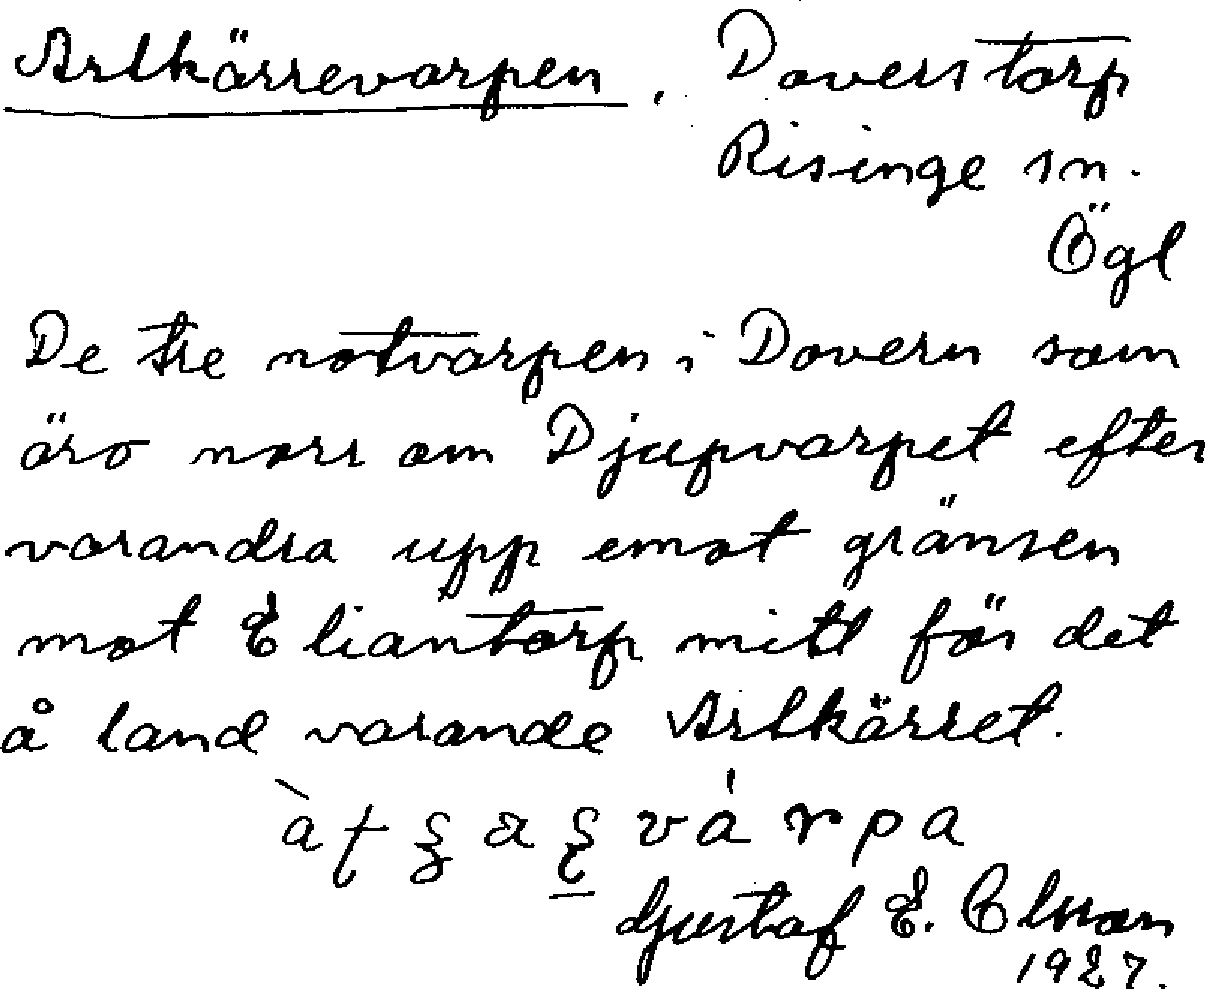 Arlkärrevarpen, Doverstorp
Risinge sn.
Ögl
De tre notvarpen i Dovern som
äro norr om Djupvarpet efter
varandra upp emot gränsen
mot Eliantorp mitt för det
å land varande Arlkärret.
Gustaf E. Olsson
1927.